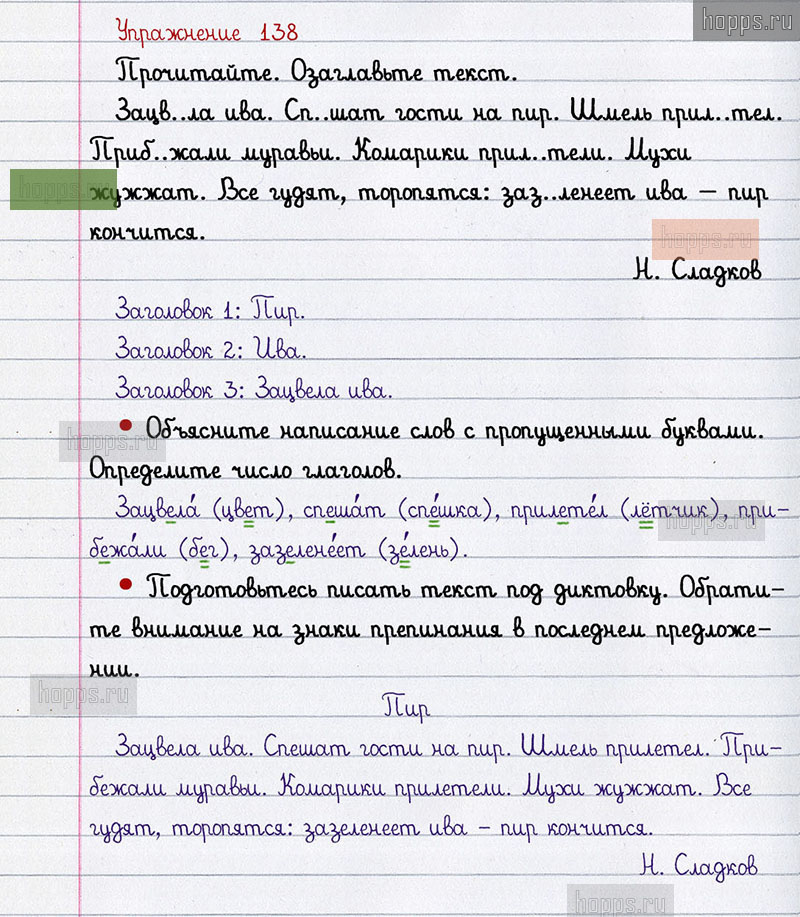 hopps.ru
Упражнение 138
Прочитайте. Озаглавьте текст.
Зацв..ла ива. Сп..шат гости на пир. Шмель прил..тел.
Приб..жали муравьи. Комарики прил..тели. Мухи
hopps.ru
жужжат. Все гудят, торопятся: заз..ленеет ива – пир
кончится.
hopps.ru
Н. Сладков
Заголовок 1: Пир.
Заголовок 2: Ива.
Заголовок 3: Зацвела ива.
• Объясните написание слов с пропущенными буквами.
hopps.ru
Определите число глаголов.
Зацвела́ (цвет), спеша́т (спе́шка), прилете́л (лётчик), при-
hopps.ru
бежа́ли (бег), зазелене́ет (зе́лень).
• Подготовьтесь писать текст под диктовку. Обрати-
те внимание на знаки препинания в последнем предложе-
нии.
hopps.ru
Пир
Зацвела ива. Спешат гости на пир. Шмель прилетел. При-
бежали муравьи. Комарики прилетели. Мухи жужжат. Все
гудят, торопятся: зазеленеет ива – пир кончится.
Н. Сладков
hopps.ru